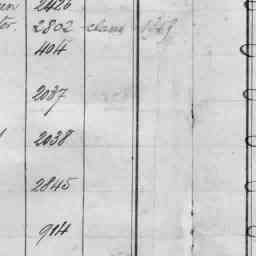 2426
2802 class
404
2037
2038
2845
904